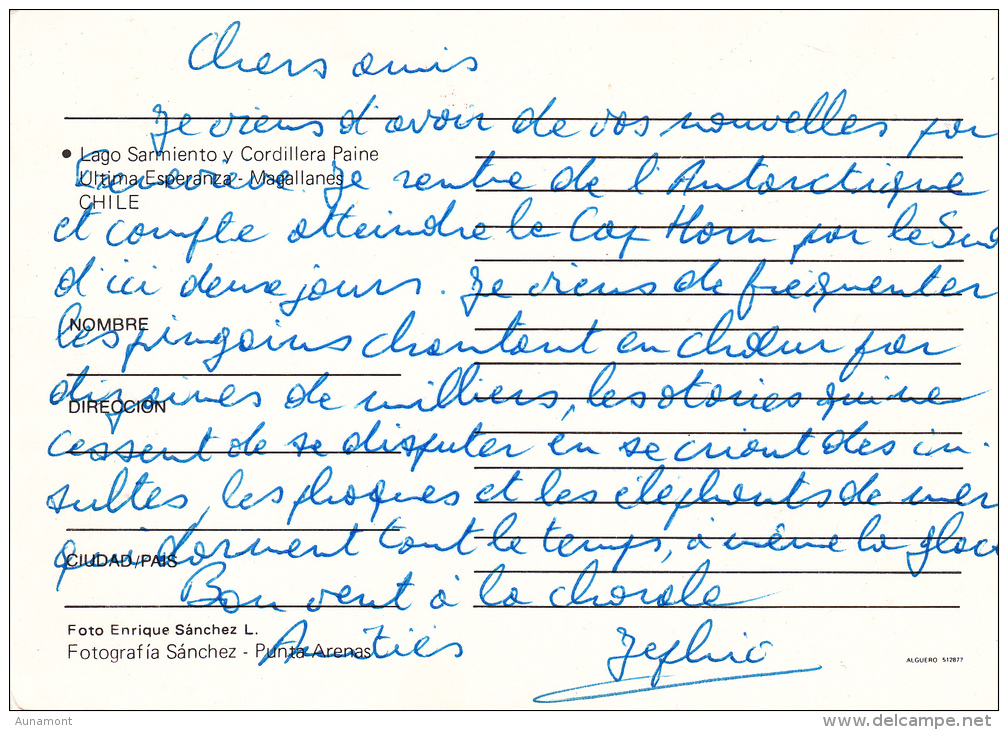 Chers amis
Je viens d'avoir de vos nouvelles par
• Lago Sarmiento y Cordillera Paine
Ultima Esperanza - Magallanes
CHILE
Je rentre de l'Antarctique
et compte atteindre le Cap Horn par le Sud
d'ici deux jours. Je viens de fréquenter
NOMBRE
les pingouins chantant en chœur par
dizaines de milliers, les otaries qui ne
DIRECCION
cessent de se disputer en se criant des in-
sultes, les phoques et les éléphants de mer
qui dorment tout le temps, à même la glace
CIUDAD/PAIS
Bon vent à la chorale
Foto Enrique Sánchez L.
Fotografía Sánchez - Punta Arenas
Amitiés
ALGUERO 512877
Aunamont
www.delcampe.net